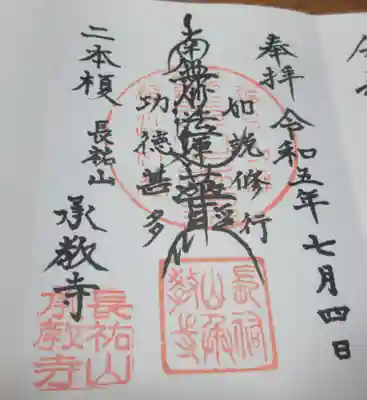 奉拝
令和五年七月四日
如説修行
南無妙法蓮華経
功徳甚多
二本榎
長祐山
承教寺
長祐山
承教寺